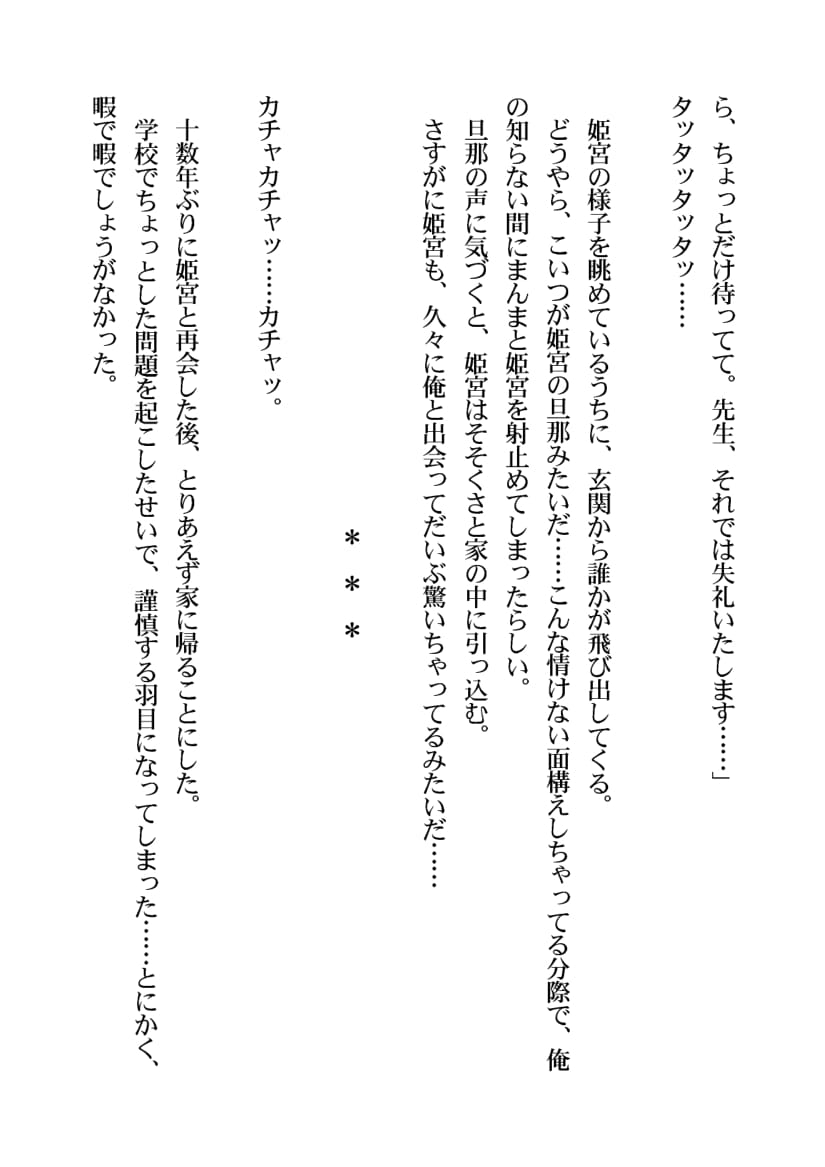 ら、ちょっとだけ待ってて。先生、それでは失礼いたします……」
タッタッタッタッ……
姫宮の様子を眺めているうちに、玄関から誰かが飛び出してくる。
どうやら、こいつが姫宮の旦那みたいだ……こんな情けない面構えしちゃってる分際で、俺
の知らない間にまんまと姫宮を射止めてしまったらしい。
旦那の声に気づくと、姫宮はそそくさと家の中に引っ込む。
さすがに姫宮も、久々に俺と出会ってだいぶ驚いちゃってるみたいだ……
＊　＊　＊
カチャカチャッ……カチャッ。
十数年ぶりに姫宮と再会した後、とりあえず家に帰ることにした。
学校でちょっとした問題を起こしたせいで、謹慎する羽目になってしまった……とにかく、
暇で暇でしょうがなかった。